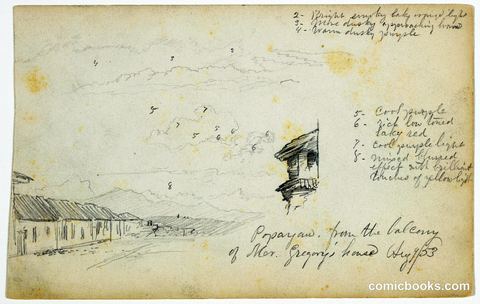 2- Bright smoky laky orange light
3- More dusky approaching warm
4- Warm dusky purple
3
2
4
8
7
5
5
6
6
6
5- Cool purple
6- Rich low toned
laky red
7- cool purple light
8- mixed blurred
effect with brilliant
touches of yellow light
8
Popayan. from the balcony
of Mr. Gregory's house Aug 9/53
comicbooks.com